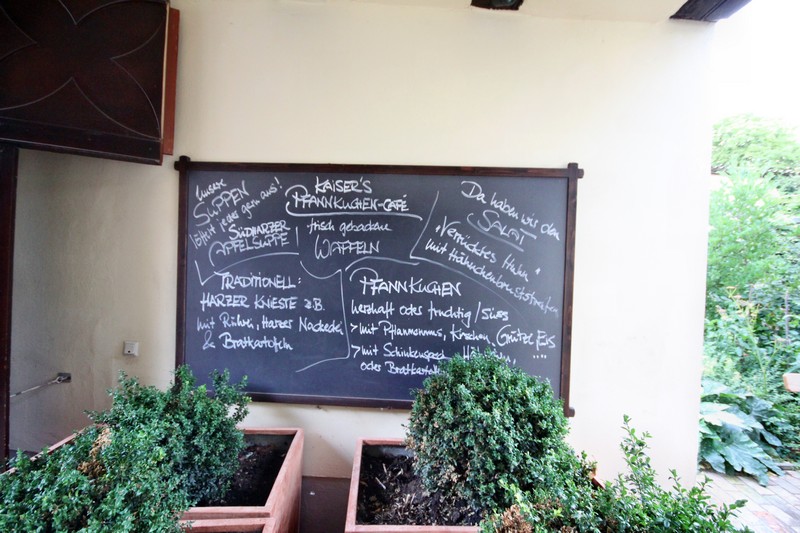 unsere
SUPPEN
löffelt jedes gern aus!
SÜDHARZER
APFELSUPPE
KAISER'S
PFANNKUCHEN-CAFÉ
frisch gebackene
WAFFELN
Da haben wir den
SALAT
"Verrücktes Huhn"
mit Hähnchenbruststreifen
TRADITIONELL:
HARZER KNIESTE z.B.
mit Rührei, Harzer
& Bratkartoffeln
PFANNKUCHEN
herzhaft oder fruchtig/Süss
>mit Pflaumenmus, Kirschen, Grütze, Eis
....
>mit Schinkenspeck,
oder